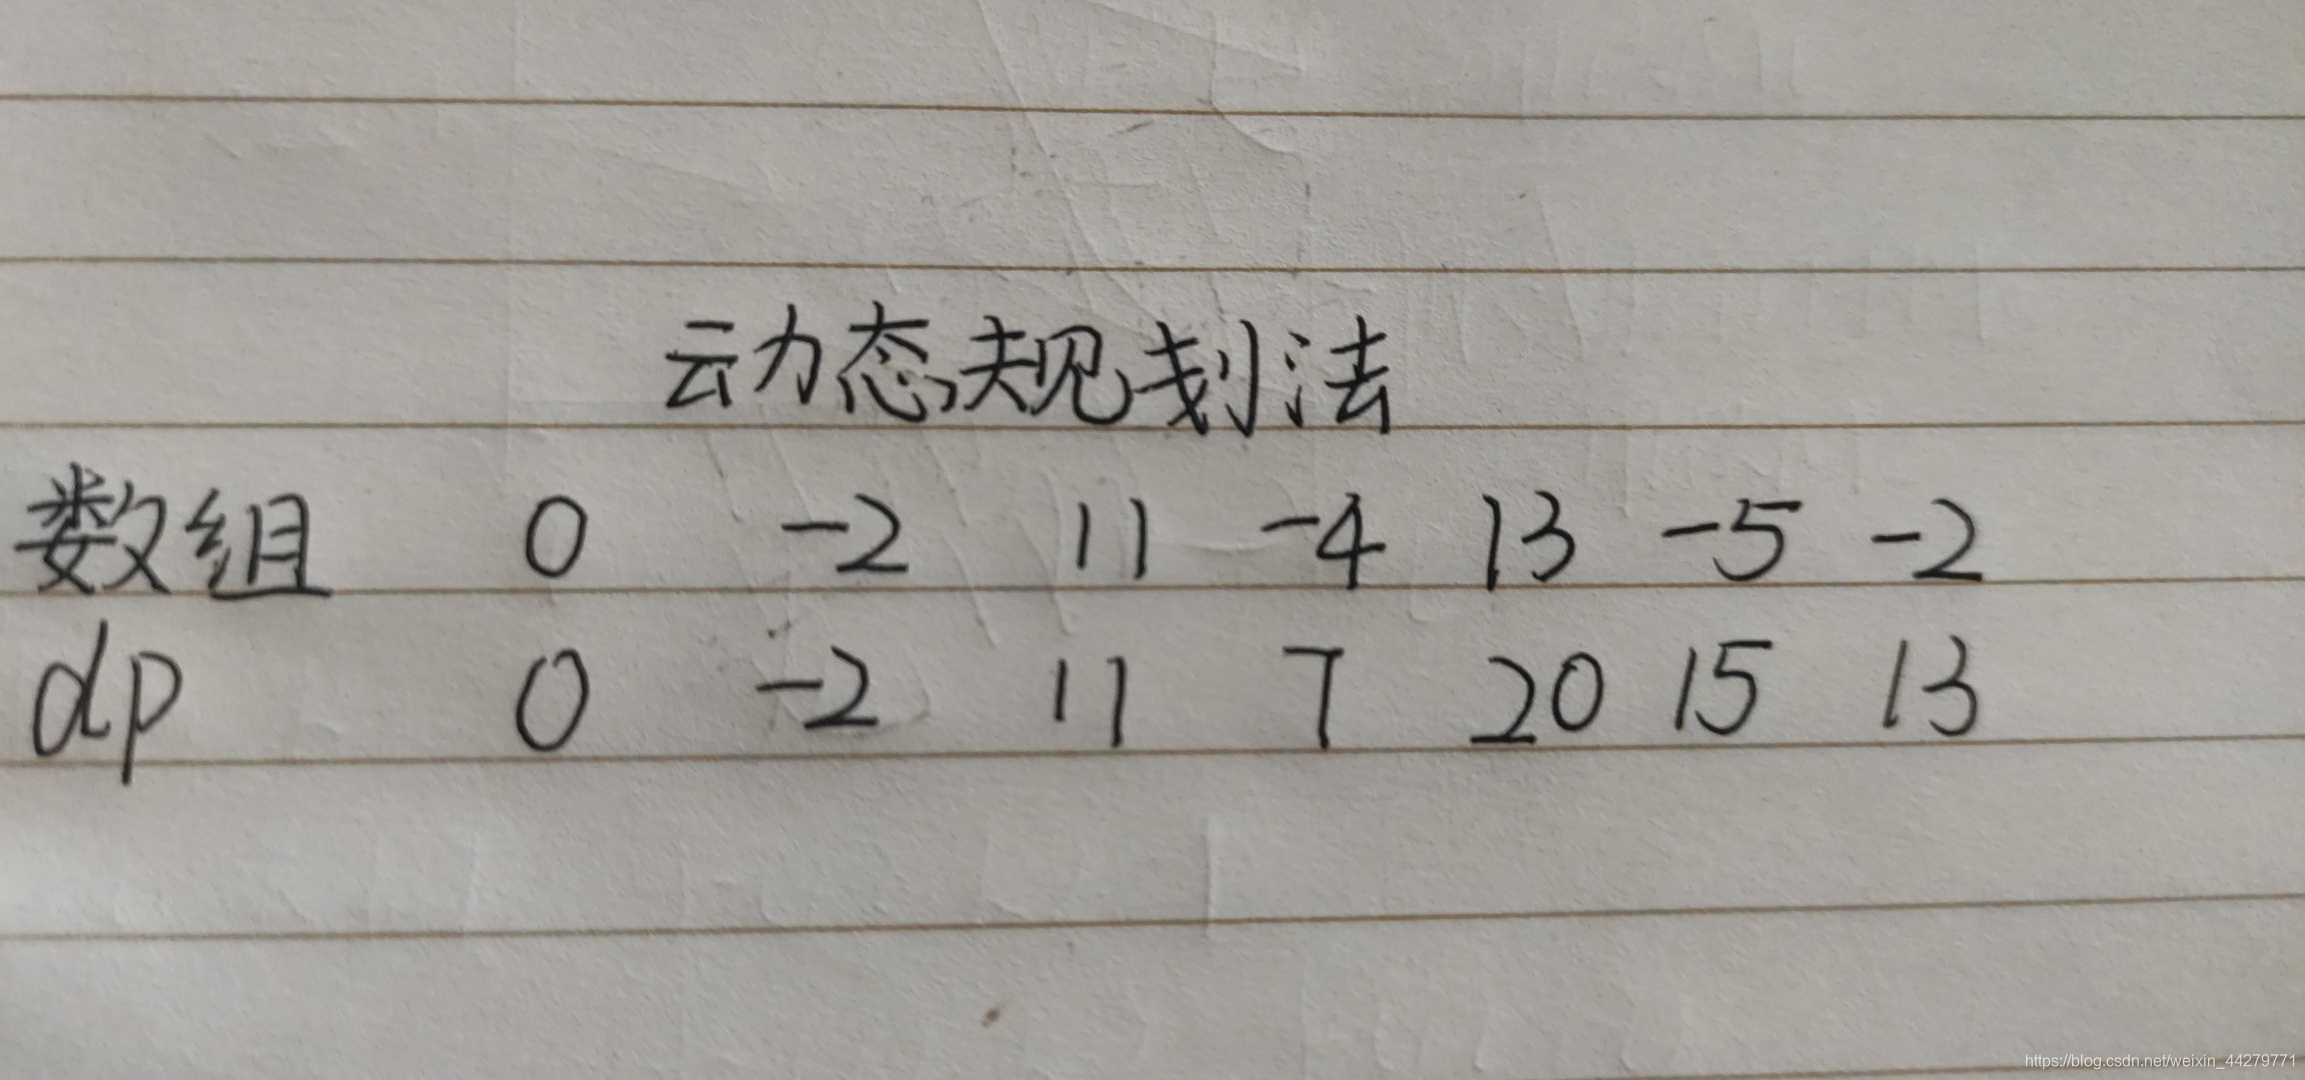 动态规划法
数组 0 -2 11 -4 13 -5 -2
dp 0 -2 11 7 20 15 13
https://blog.csdn.net/weixin_44279771